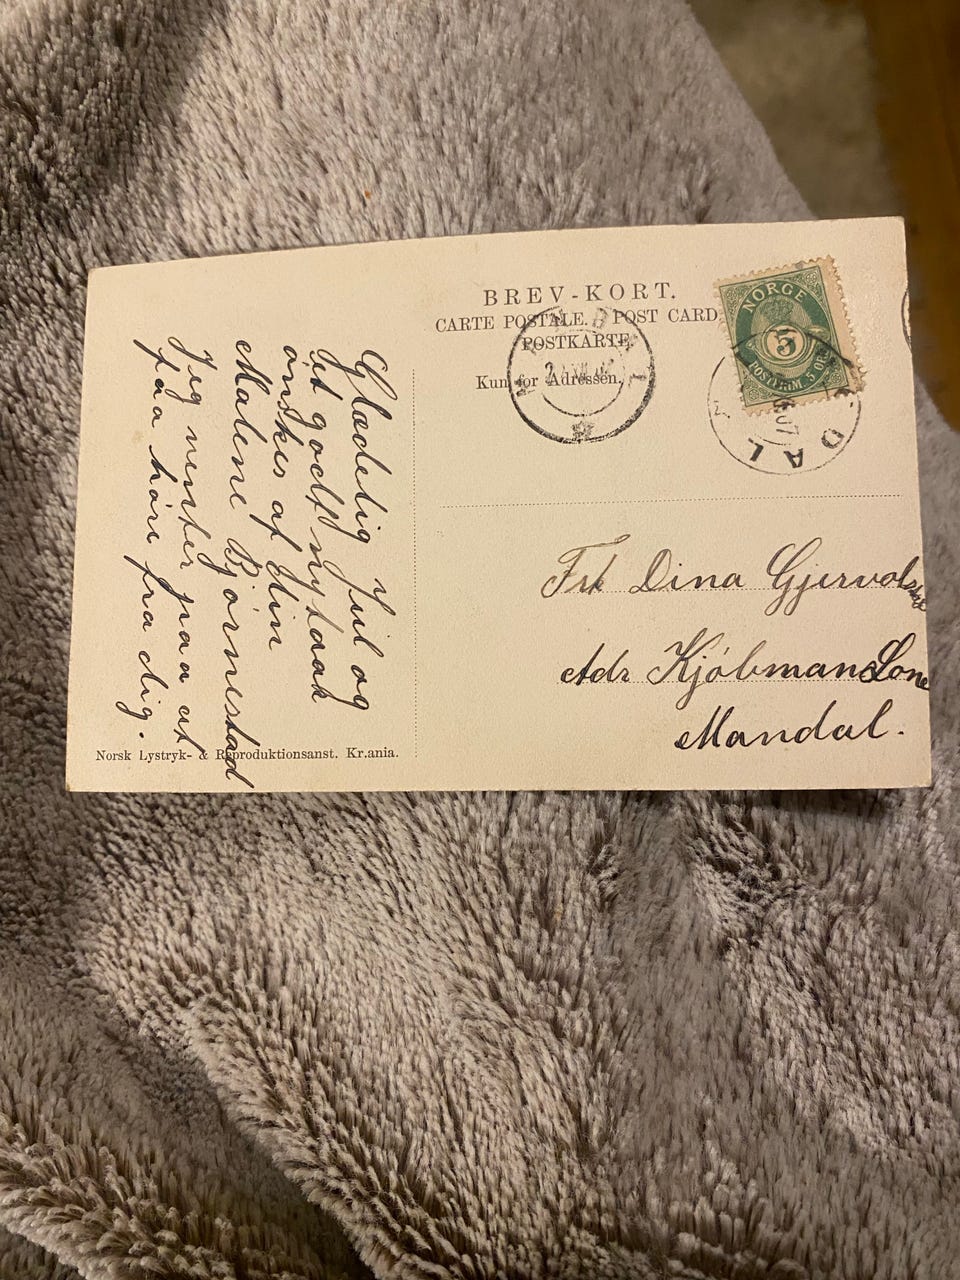 BREV-KORT.
CARTE POSTALE. POST CARD
POSTKARTE
Kun for Adressen.
NORGE
5
POSTFRIM. 5 ØRE
DAL
07
Glædelig Jul og
et godt nytaar
ønskes af Din
Malene Bjørnestad
Jeg venter paa at
faa høre fra dig.
Frk Dina
Adr Kjøbmand
Mandal.
Norsk Lystryk- & Reproduktionsanst. Kr.ania.